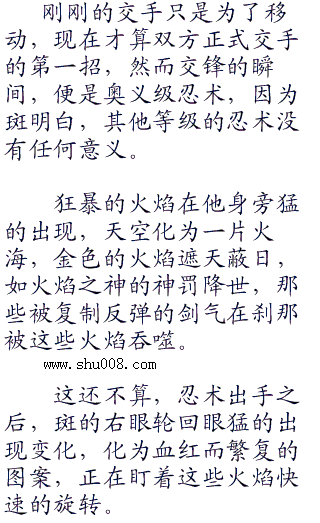 刚刚的交手只是为了移
动，现在才算双方正式交手
的第一招，然而交锋的瞬
间，便是奥义级忍术，因为
斑明白，其他等级的忍术没
有任何意义。
狂暴的火焰在他身旁猛
的出现，天空化为一片火
海，金色的火焰遮天蔽日，
如火焰之神的神罚降世，那
些被复制反弹的剑气在刹那
被这些火焰吞噬。
www.shu008.com
这还不算，忍术出手之
后，斑的右眼轮回眼猛的出
现变化，化为血红而繁复的
图案，正在盯着这些火焰快
速的旋转。